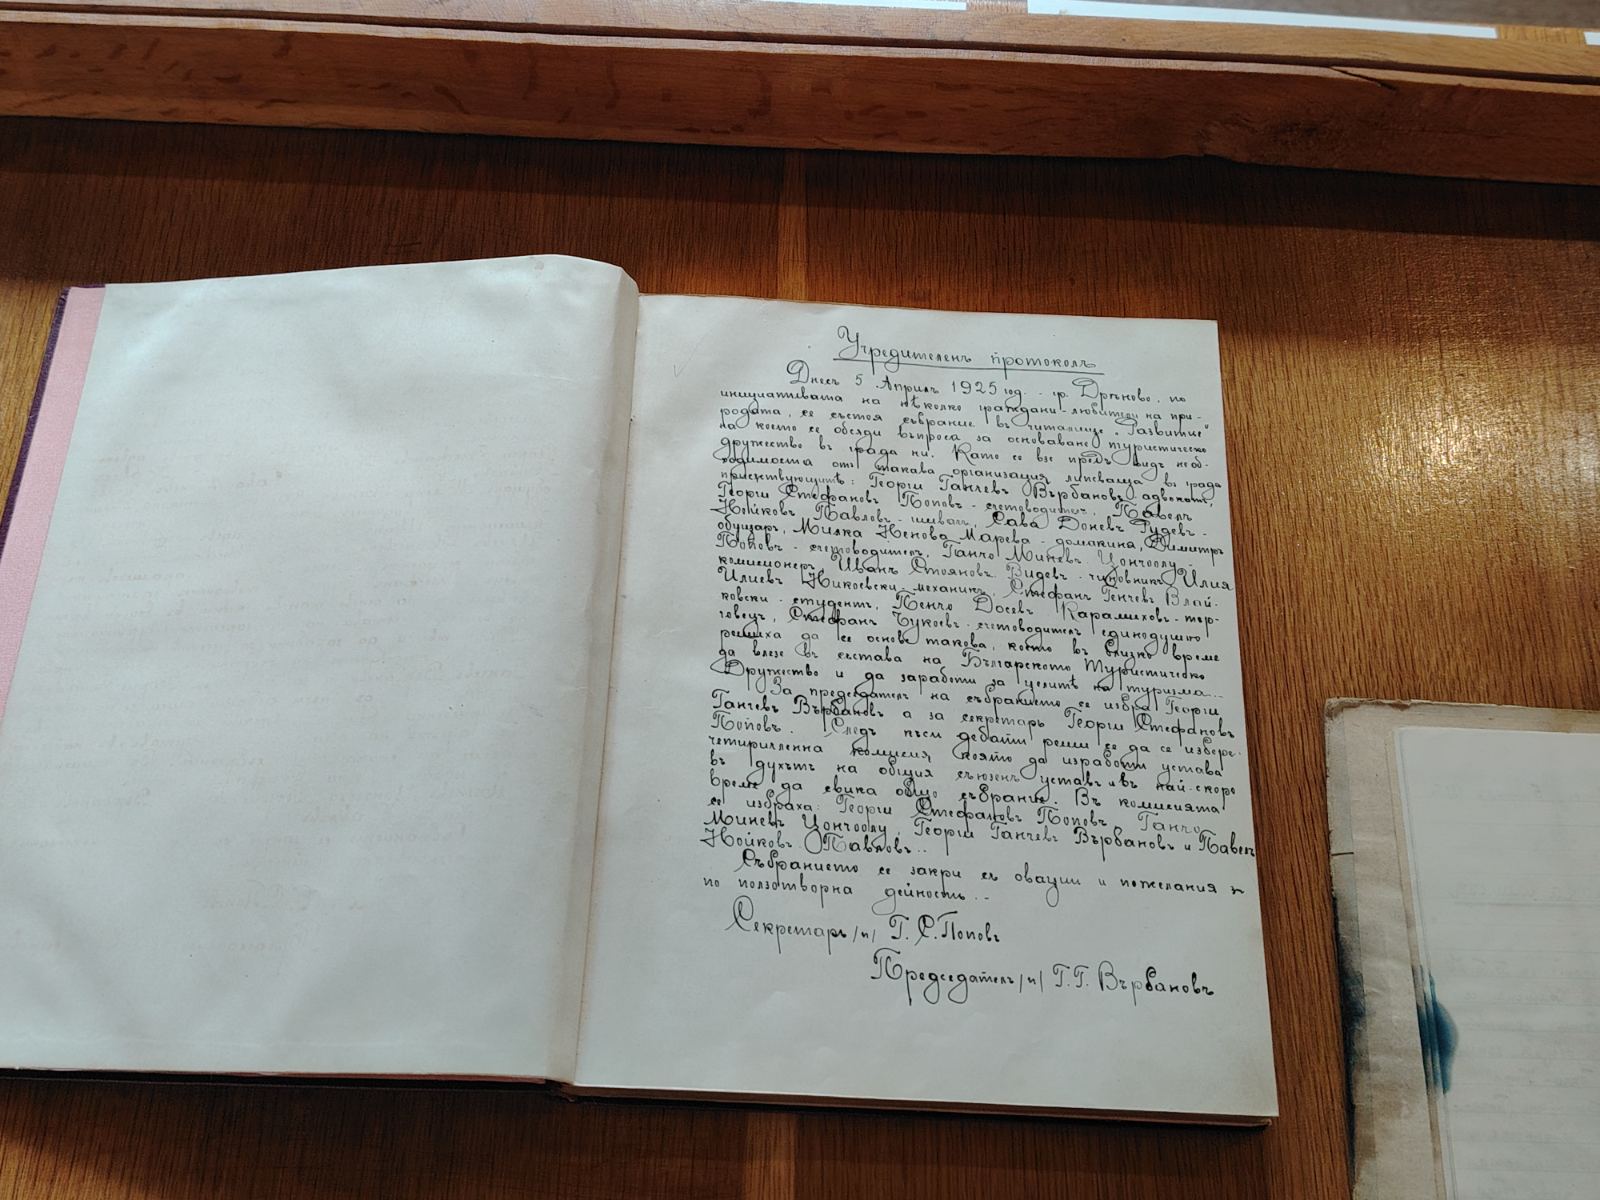 Учредителенъ протоколъ
Днесъ 5 Априлъ 1925 год. - гр. Дрѣново, по
инициативата на нѣколко граждани-любители на при-
родата, се състоя събрание въ читалище "Развитие"
на което се обсѫди въпроса за основаване туристическо
дружество въ града ни. Като се взе предъ видъ необ-
ходимостта отъ такава организация, липсваща въ града
присѫтствующитѣ: Георги Ганчевъ Върбановъ, адвокатъ,
Георги Стефановъ Поповъ - счетоводителъ, Павелъ
Нойковъ Павловъ - шивачъ, Сава Доневъ Рудевъ -
обущаръ, Милка Ненова Марева - домакиня, Димитръ
Поповъ - счетоводителъ, Ганчо Миневъ Цончоолу -
комисионеръ, Иванъ Стояновъ Видевъ - чиновникъ, Илия
Илиевъ Никоевски - механикъ, Стефанъ Генчевъ Влай-
ковски - студентъ, Пенчо Досевъ Карамиховъ - тър-
говецъ, Стефанъ Чукоевъ - счетоводителъ единодушно
решиха да се основе такова, което въ близко време
да влезе въ състава на Българското Туристическо
Дружество и да заработи за целитѣ на туризма...
За председателъ на събранието се избра Георги
Ганчевъ Върбановъ а за секретаръ Георги Стефановъ
Поповъ. Следъ къси дебати реши се да се избере
четиричленна комисия, която да изработи устава
въ духътъ на общия съюзенъ уставъ и въ най-скоро
време да свика общо събрание. Въ комисията
се избраха: Георги Стефановъ Поповъ, Ганчо
Миневъ Цончоолу, Георги Ганчевъ Върбановъ и Павелъ
Нойковъ Павловъ..
Събранието се закри съ овации и пожелания за
по ползотворна дейность...
Секретаръ /п/ Г. С. Поповъ
Председателъ /п/ Г. Г. Върбановъ